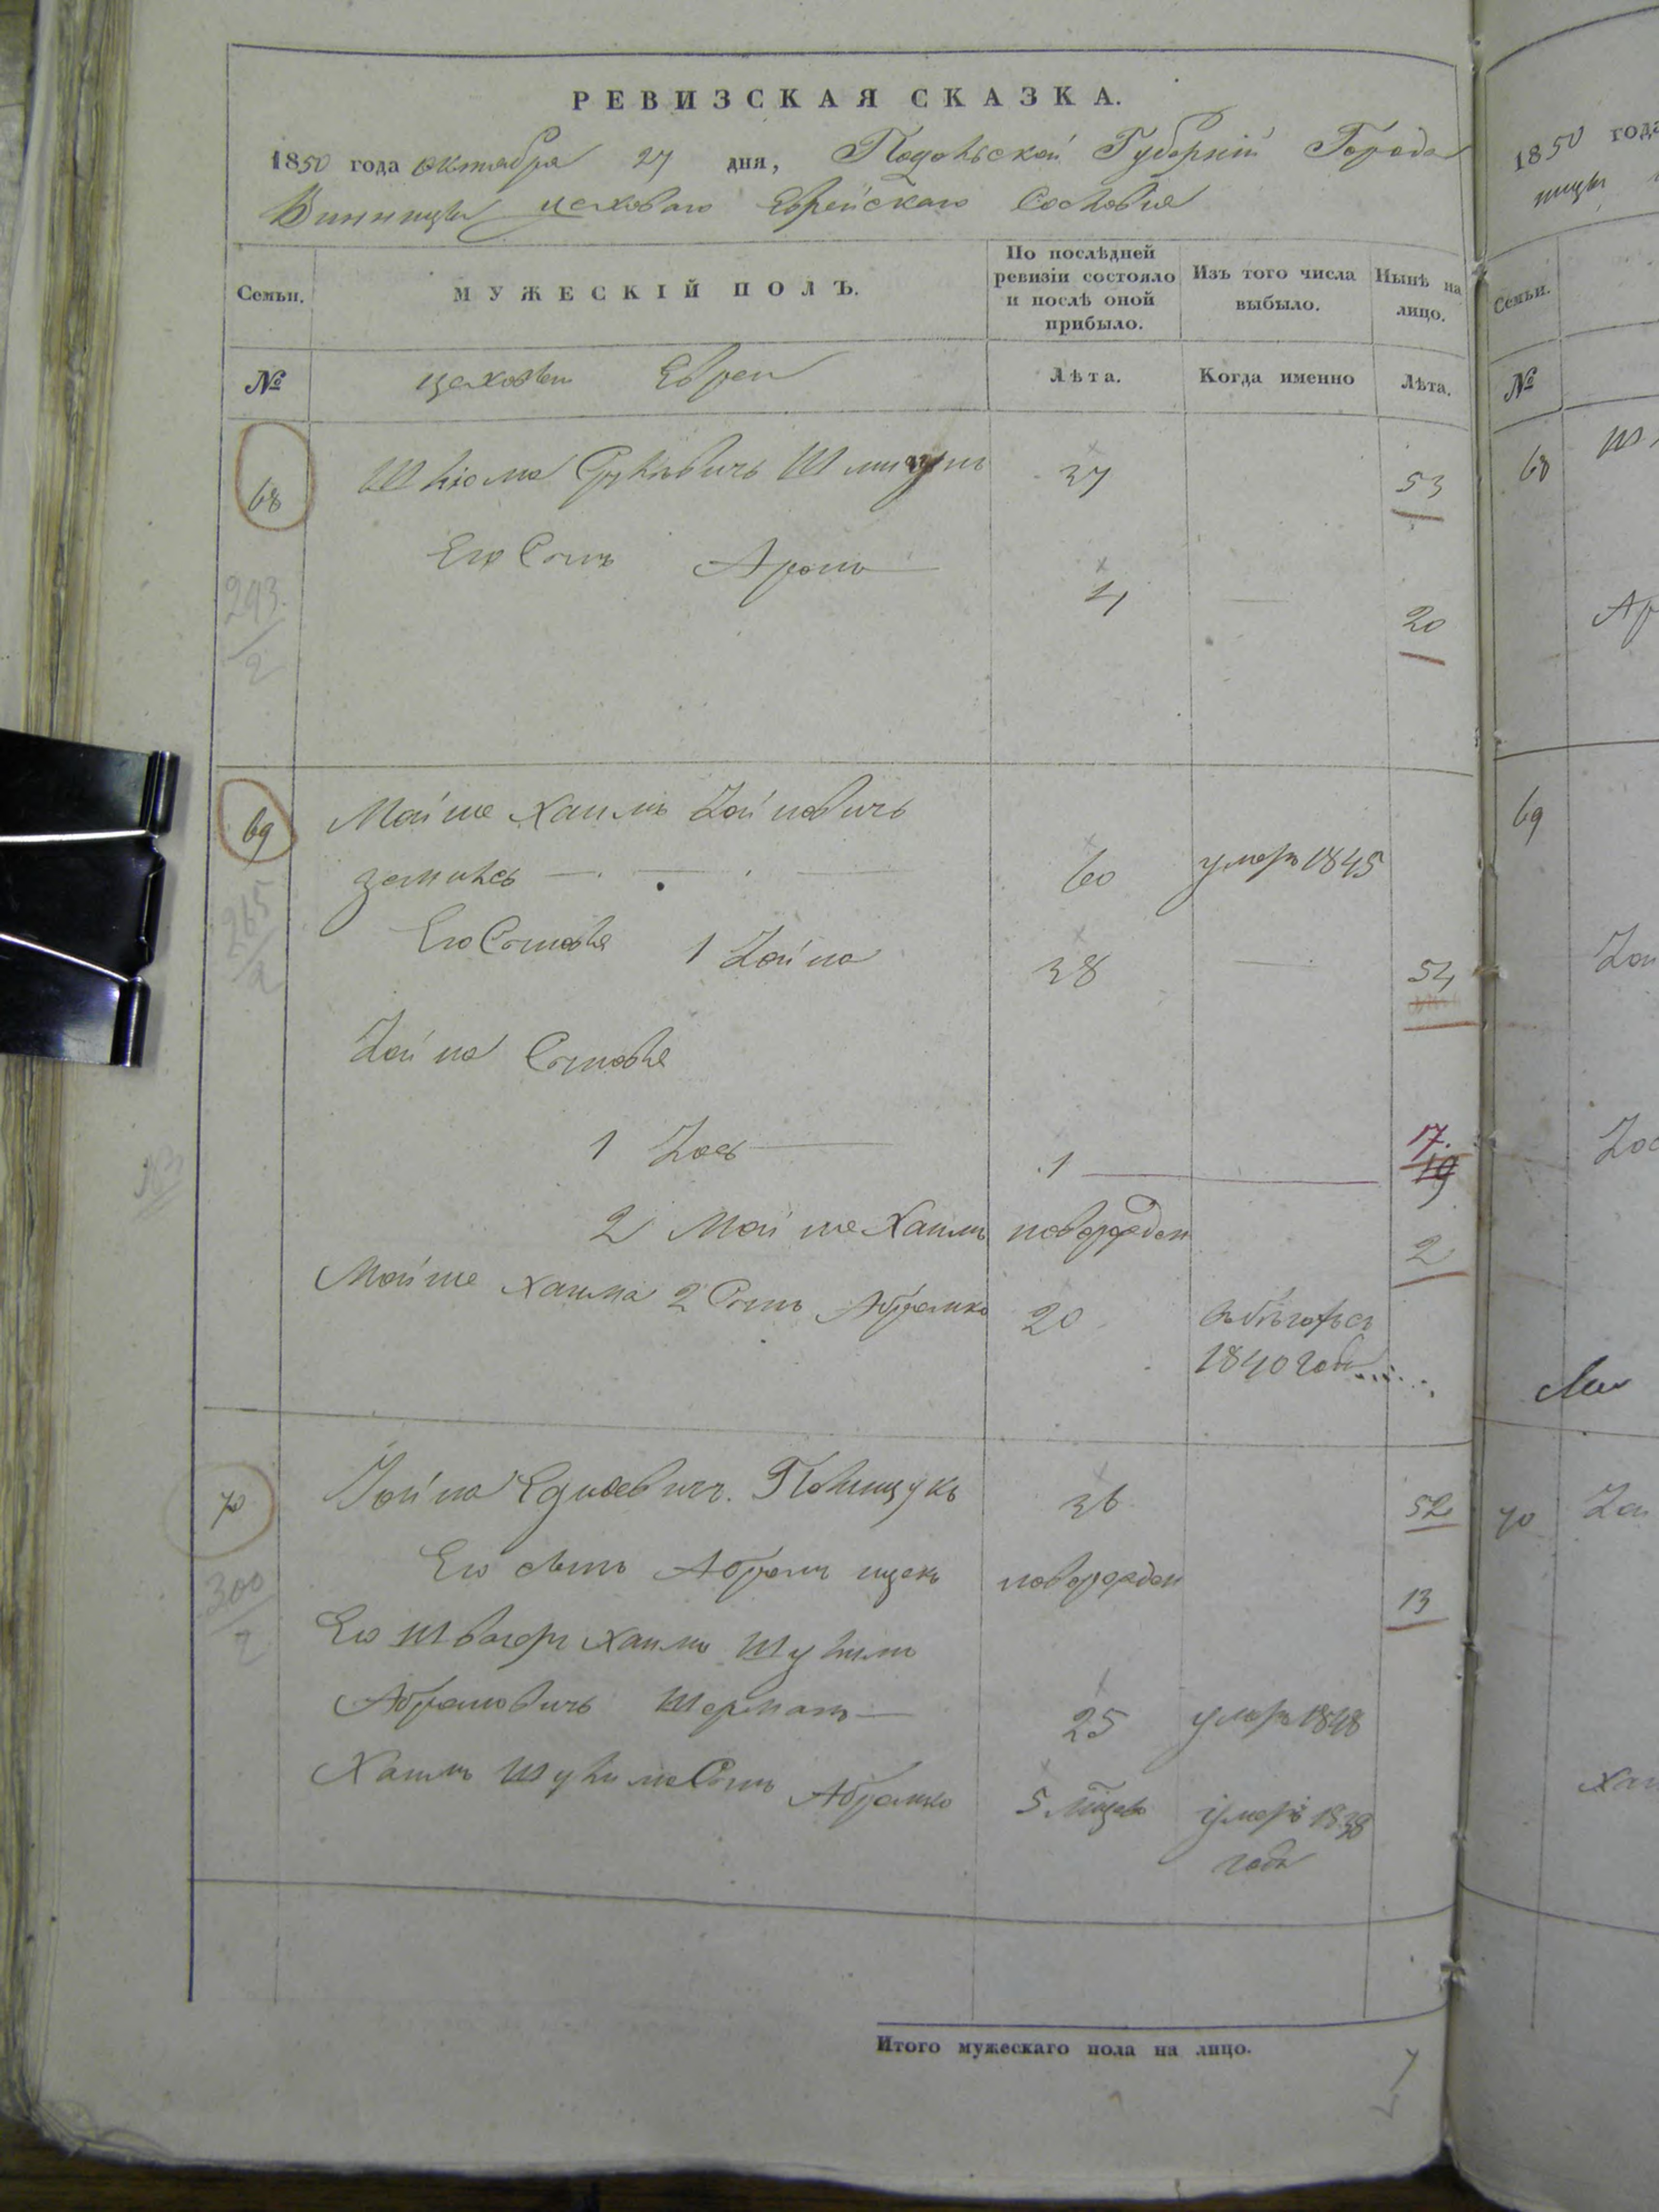 РЕВИЗСКАЯ СКАЗКА.
1850 года октября 27 дня, Подольской Губернiи Города
Винницы цеховаго Еврейскаго Сословiя
Семьи.
МУЖЕСКІЙ ПОЛЪ.
По послѣдней ревизіи состояло и послѣ оной прибыло.
Изъ того числа выбыло.
Нынѣ на лицо.
№
цеховые Евреи
Лѣта.
Когда именно
Лѣта.
68 Шлiома Шмидтъ 37 53
293
2
Его Сынъ Аронъ 4 — 20
69 Мойше Хаимъ Iойновичъ
60 умеръ 1845
265
2
Его Сыновья 1 Iойна 38 — 54
Iойна Сыновья
1 Iось — 1 — 17. 19
2 Мойше Хаимъ новорожден 2
Мойше Хаима 2 Сынъ Абрамко 20
1840 года
70 Iойна Полищукъ 36 52
300
2
Его сынъ Абрамъ Ицекъ новорожден 13
Его Швагеръ Хаимъ Шулимъ
Абрамовичъ Шерманъ — 25 умеръ 1848
Хаимъ Шулима Сынъ Абрамко 5 умеръ 1838
года
Итого мужескаго пола на лицо. 7
1850 года
ницы
Семьи.
№
68
Ар
69
Iой
Iос
70
Iой
Хаи